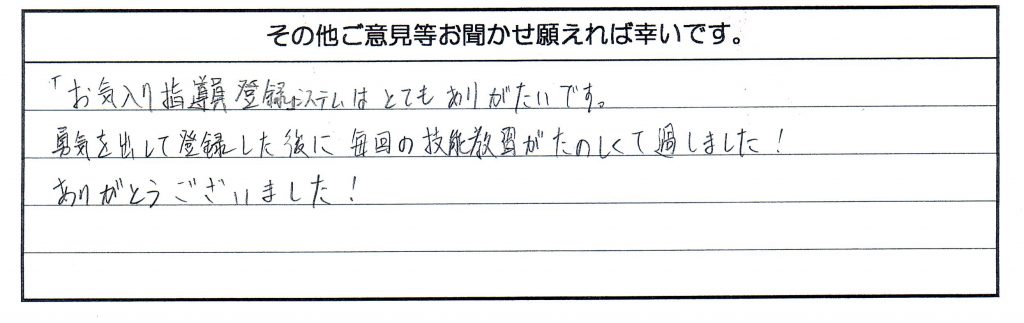 その他ご意見等お聞かせ願えれば幸いです。
「お気入り指導員登録」システムはとてもありがたいです。
勇気を出して登録した後に毎回の技能教習がたのしくて過しました！
ありがとうございました！